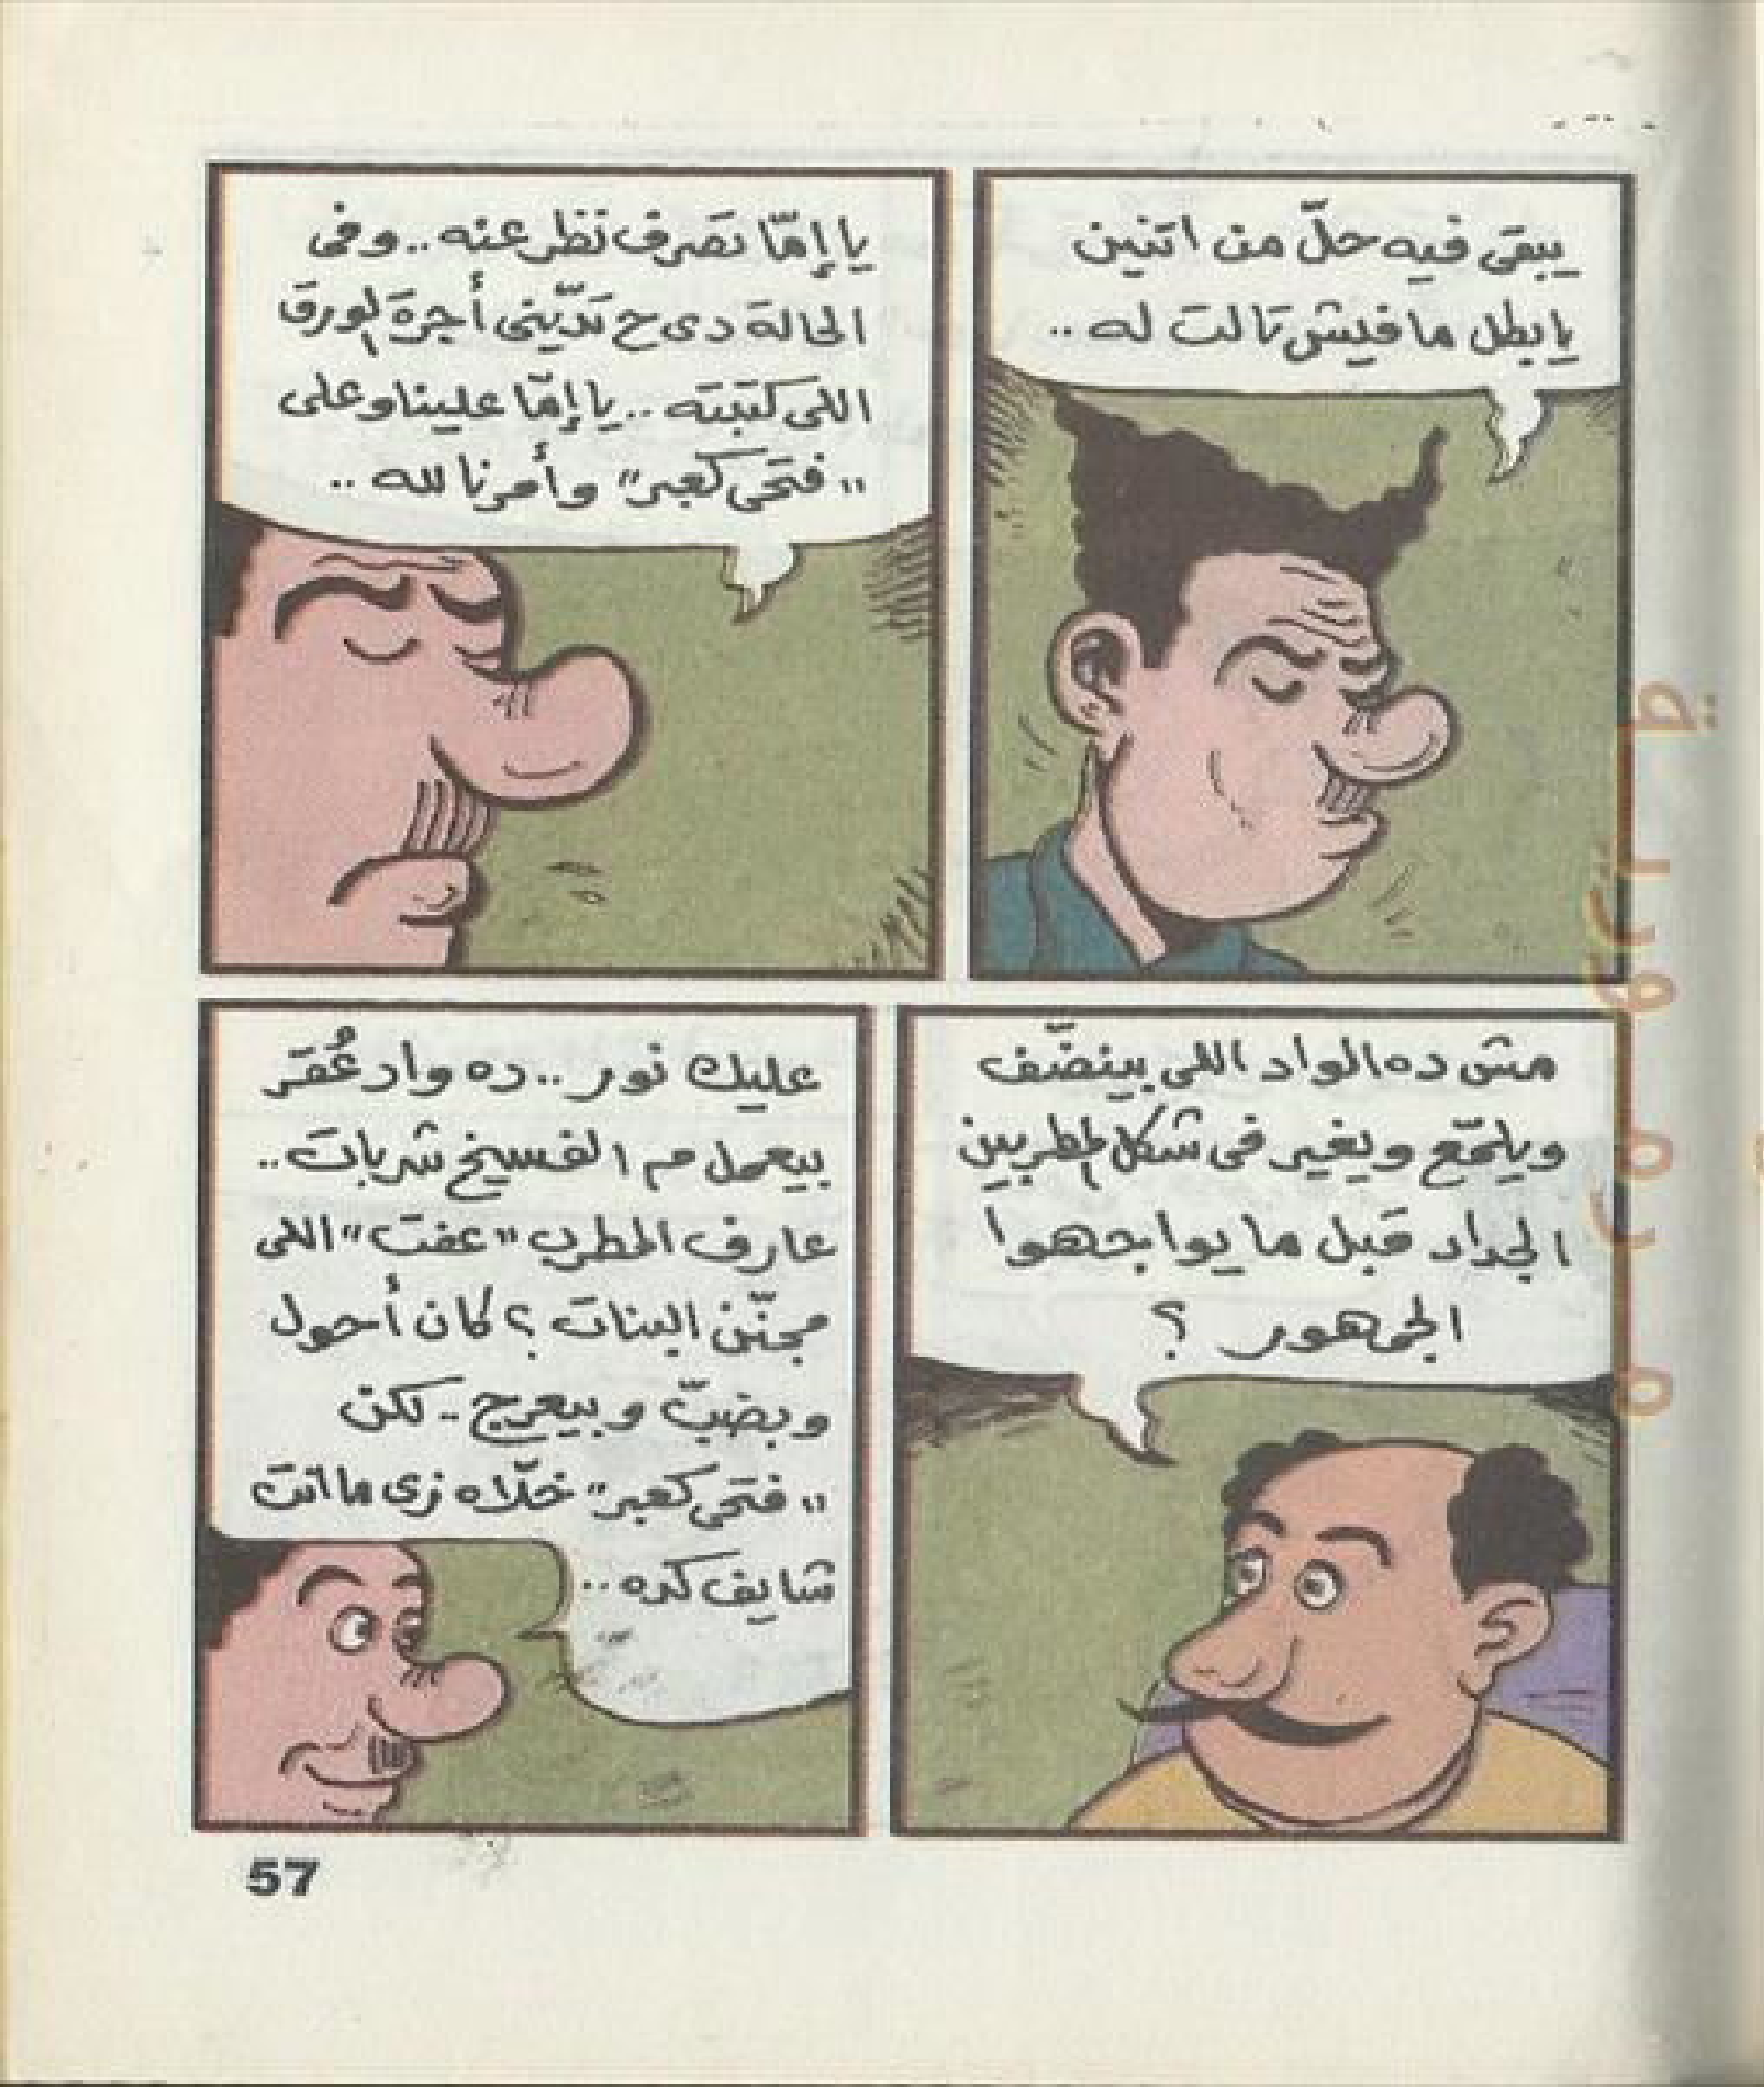 يبقى فيه حلّ من اتنين
يا بطل ما فيش تالت له ..
يا إمّا نصرف نظر عنه .. وفى
الحالة دى ح تدّينى أجرة الورق
اللى كتبته .. يا إمّا علينا وعلى
"فتحى كعبر" وأمرنا لله ..
مش ده الواد اللى بينضّف
ويلمّع ويغير فى شكل المطربين
الجداد قبل ما يواجهوا
الجمهور ؟
عليك نور .. ده واد عُقَر
بيعمل م الفسيخ شربات ..
عارف المطرب "عفت" اللى
مجنّن البنات ؟ كان أحول
وبضبّ وبيعرج .. لكن
"فتحى كعبر" خلّاه زى ما انت
شايف كده ..
57